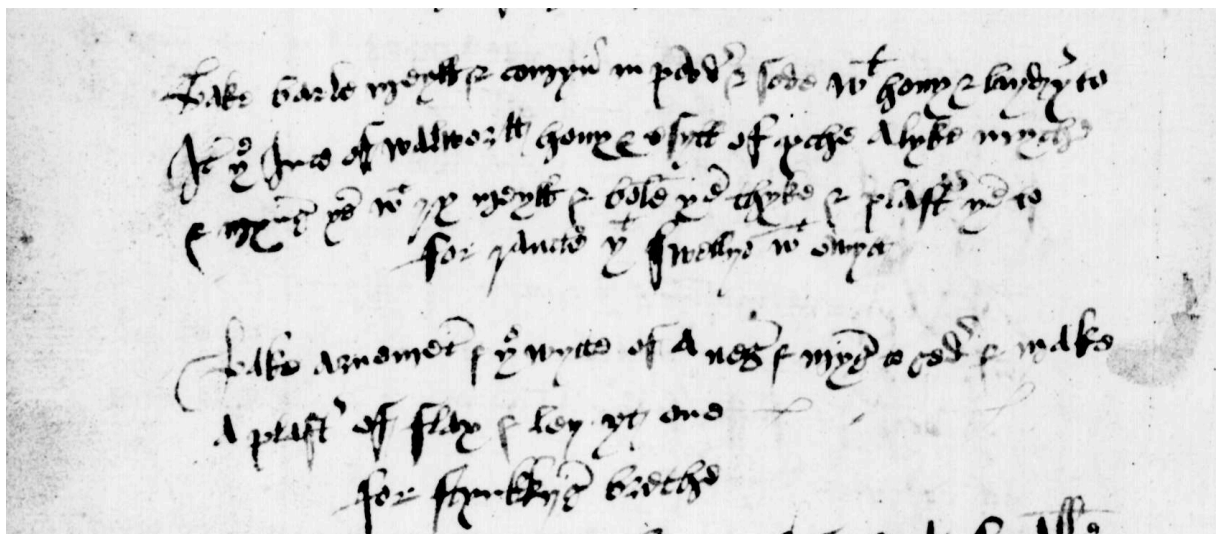 Take barle meyll & comyn in powdr & sode wt hony & lay yt to
It ye Iuce of walwortt hony & oyll of yche A lyke myche
& myng ys wt ry meyll & bole ym thyke & plastr ym to
for yt swellys wt
Take arnement & ye wytte of A neg & myng to gedr & make
A plastr of flax & ley yt one
for stynkkyng brethe